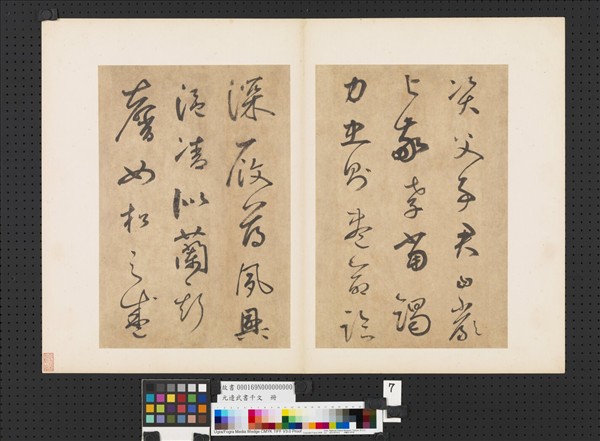 資父事君曰嚴
與敬孝當竭
力忠則盡命臨
深履薄夙興
溫凊似蘭斯
馨如松之盛
故書 000169N000000000
元邊武書千文 冊
7